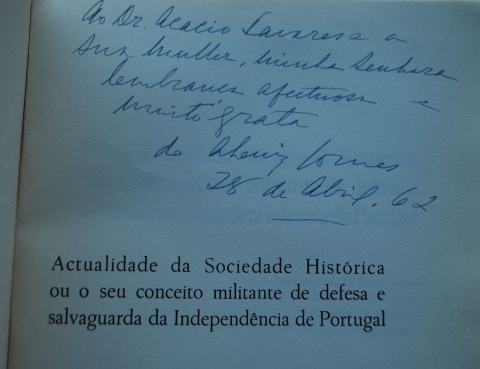 Ao Dr. Acacio Tavares e a
sua mulher, minha Senhora
lembrança afectuosa e
muito grata
de
28 de Abril. 62
Actualidade da Sociedade Histórica
ou o seu conceito militante de defesa e
salvaguarda da Independência de Portugal